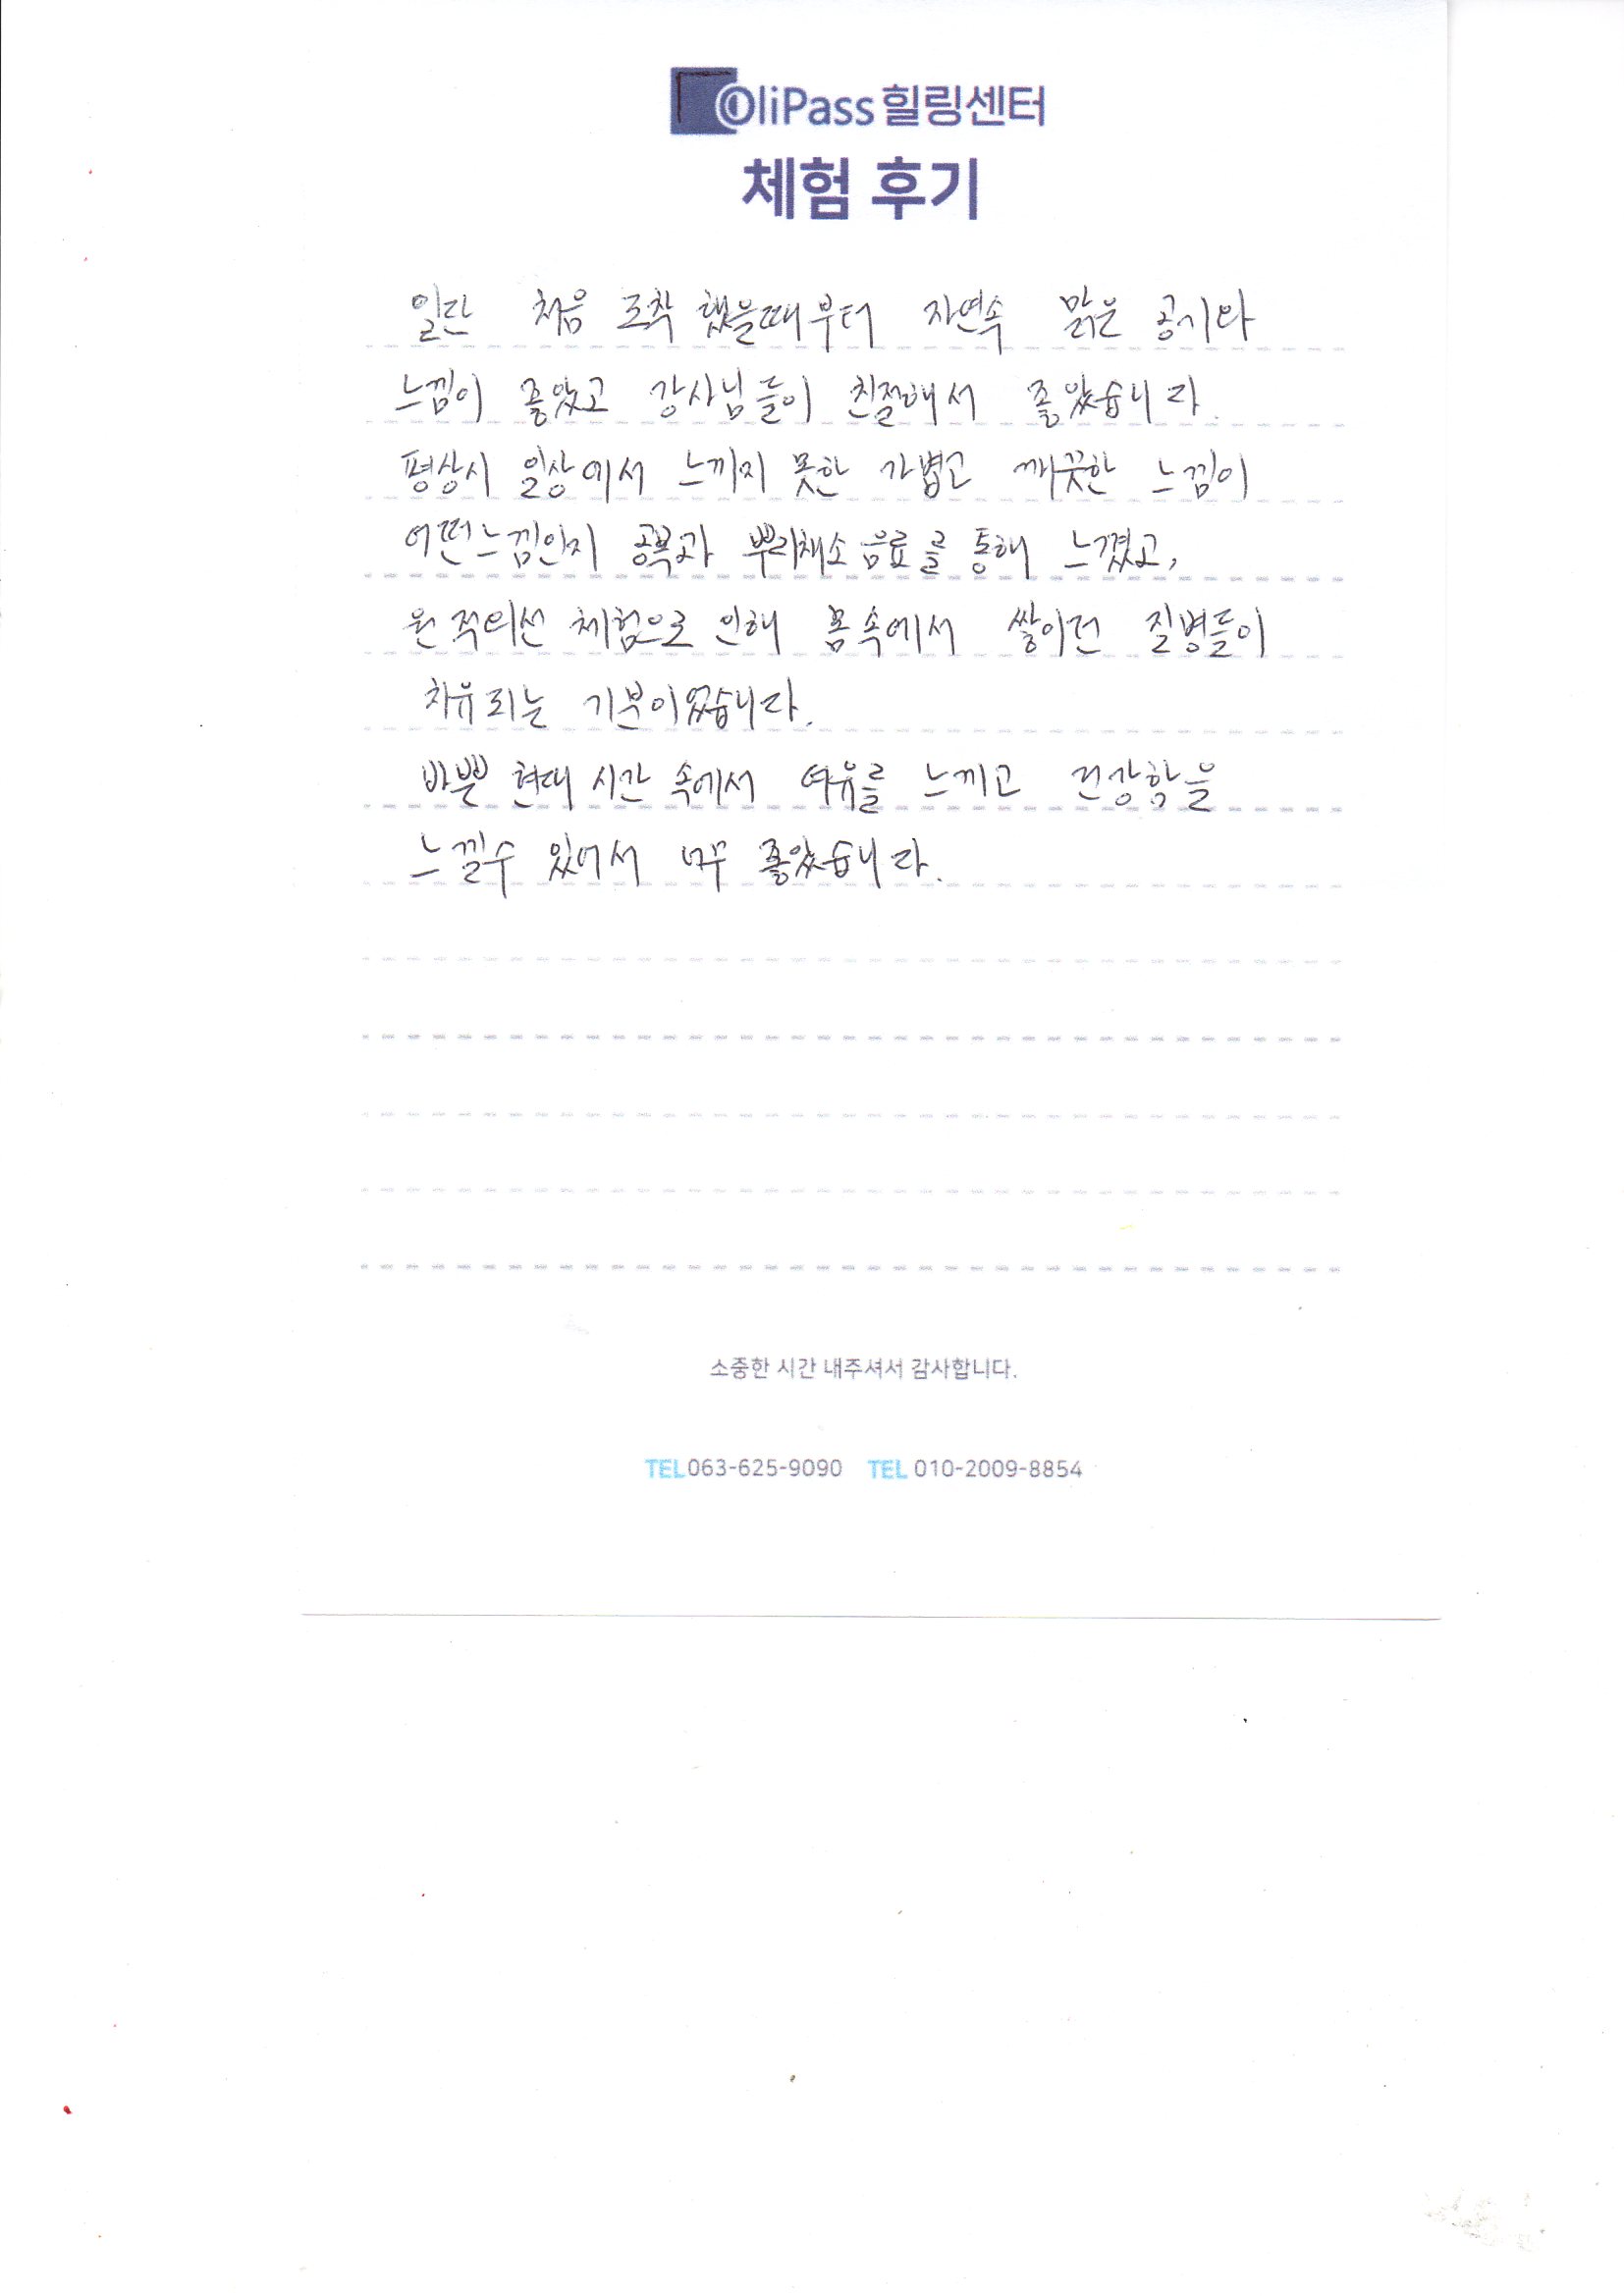 OliPass 힐링센터
체험 후기
일단 처음 도착 했을때부터 자연속 맑은 공기와
느낌이 좋았고 강사님들이 친절해서 좋았습니다.
평상시 일상에서 느끼지 못한 가볍고 깨끗한 느낌이
어떤느낌인지 공복과 뿌리채소음료를 통해 느꼈고,
원적외선 체험으로 인해 몸속에서 쌓이던 질병들이
치유되는 기분이었습니다.
바쁜 현대 시간 속에서 여유를 느끼고 건강함을
느낄수 있어서 너무 좋았습니다.
소중한 시간 내주셔서 감사합니다.
TEL 063-625-9090 TEL 010-2009-8854